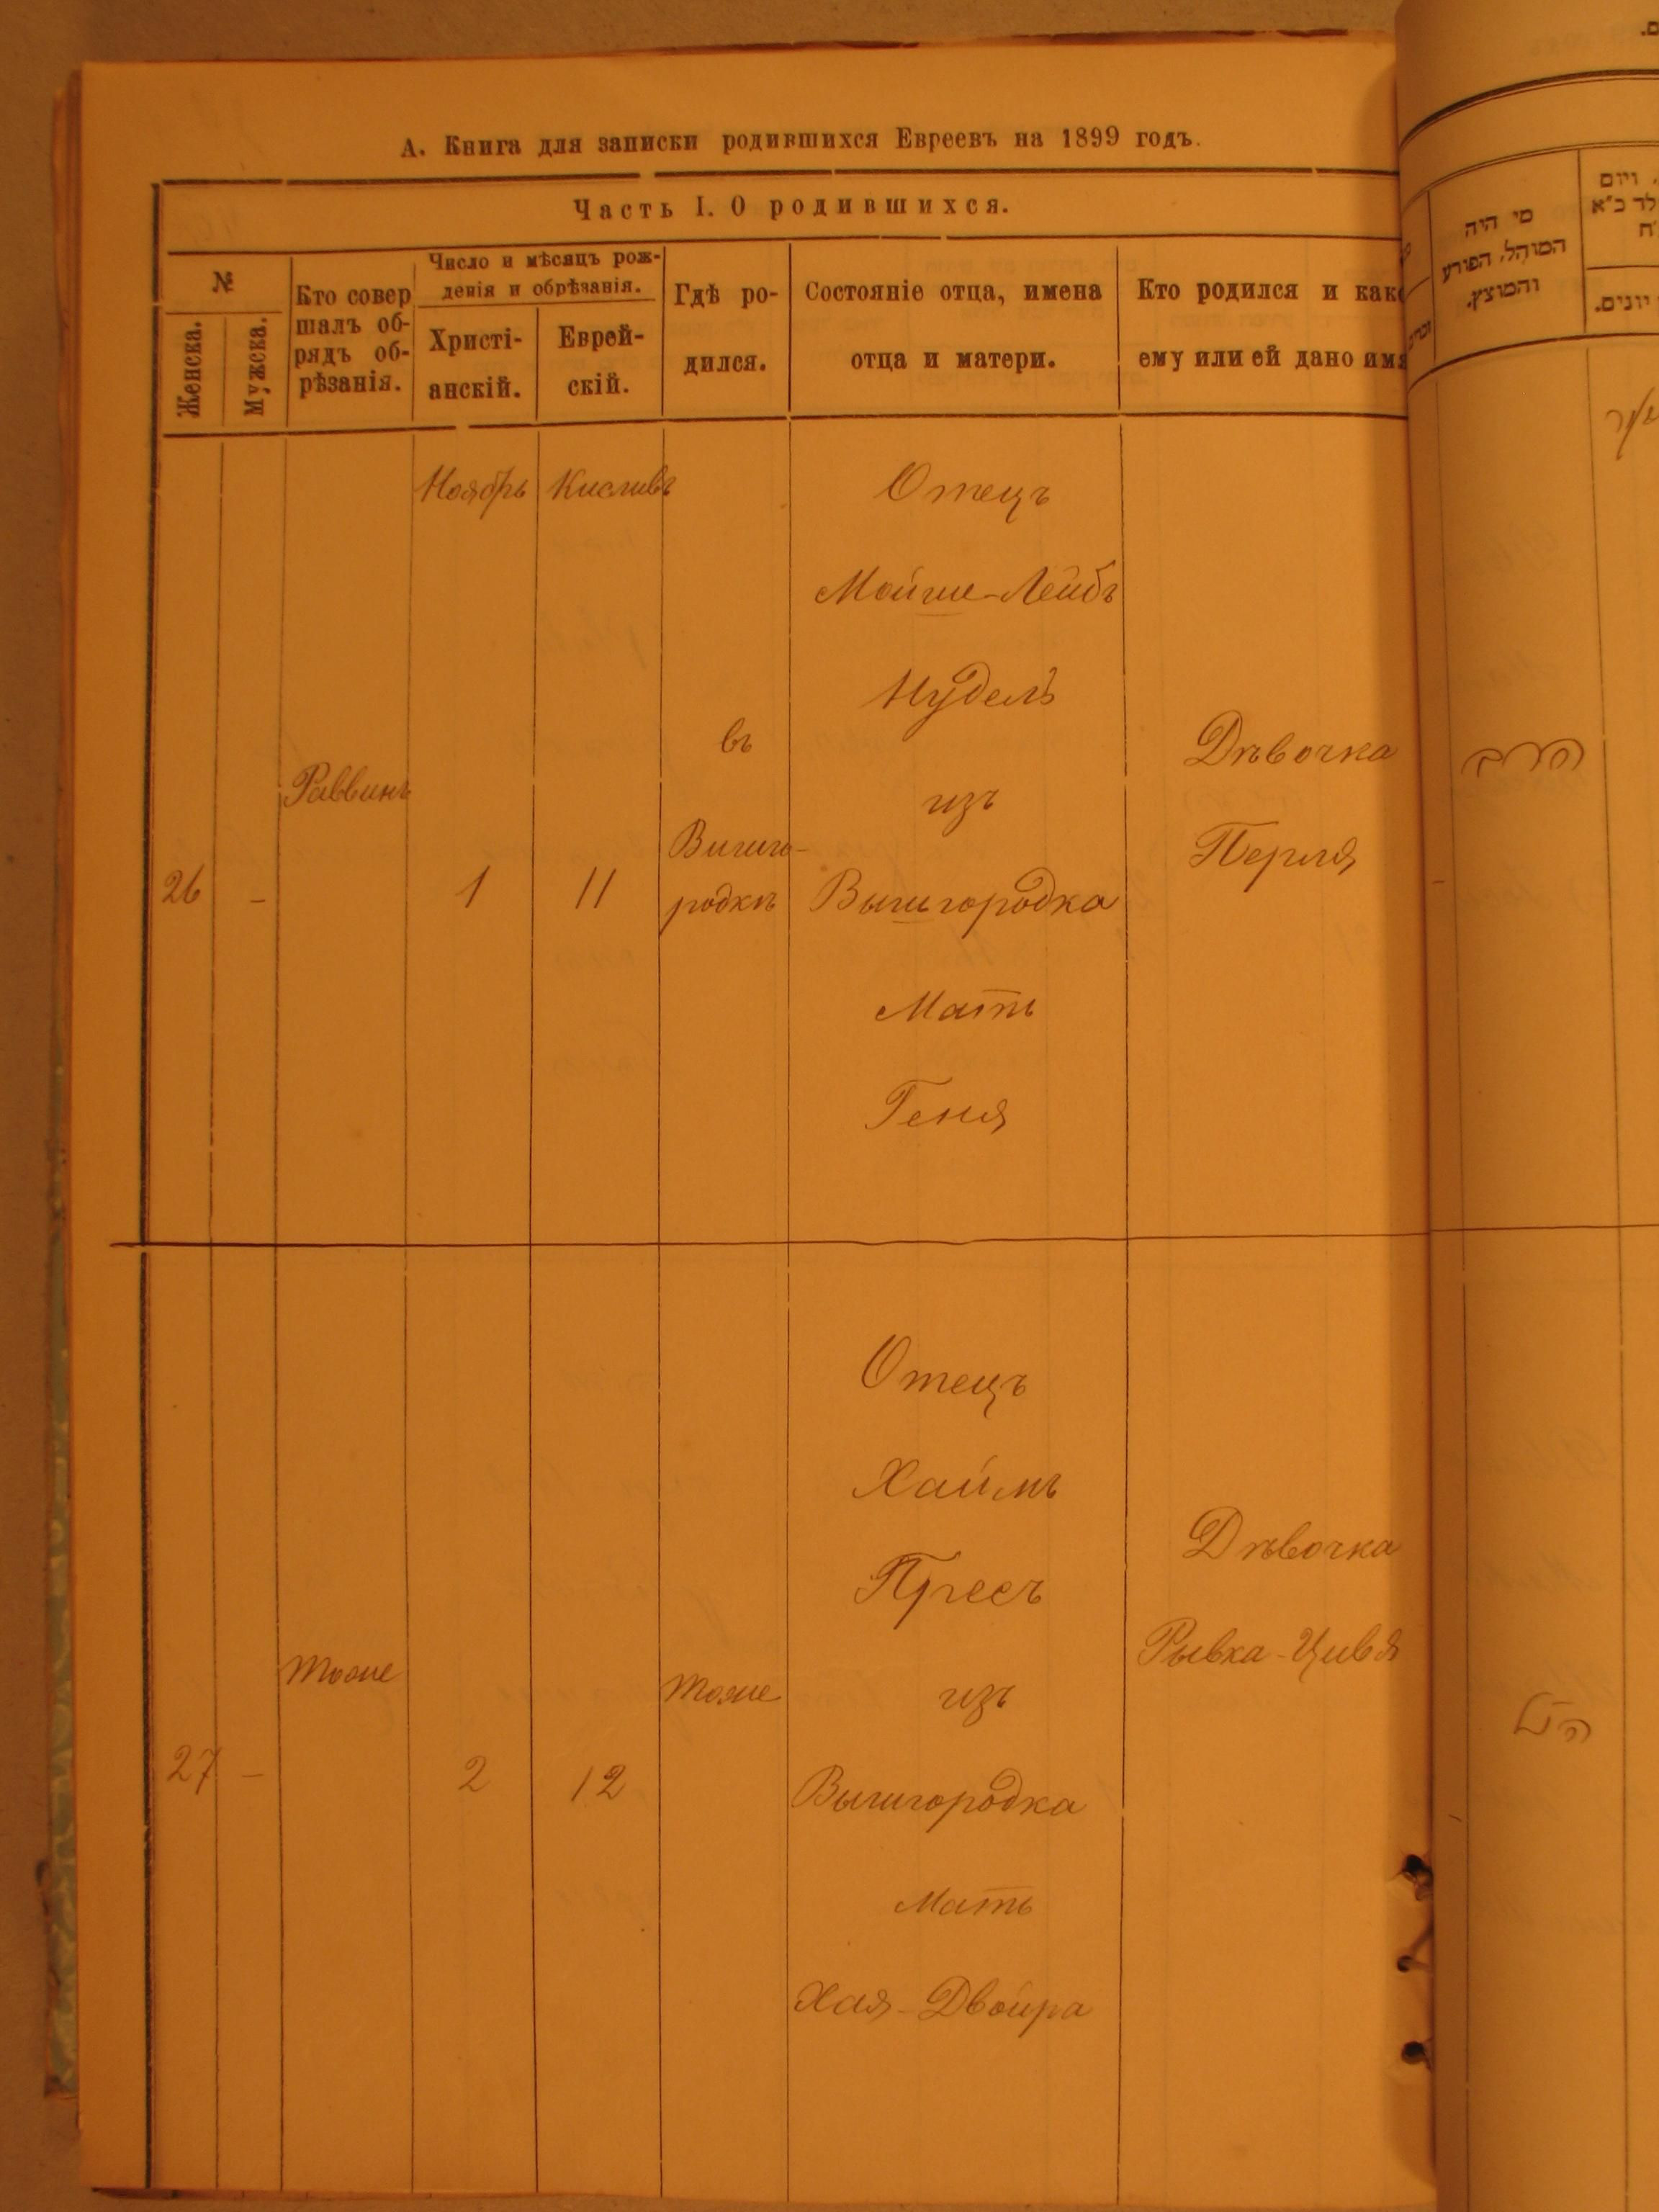 А. Книга для записки родившихся Евреевъ на 1899 годъ.
Часть I. О родившихся.
№
Женска.
Мужска.
Кто совер
шалъ об-
рядъ об-
рѣзанія.
Число и мѣсяцъ рож-
денія и обрѣзанія.
Христі-
анскій.
Еврей-
скій.
Гдѣ ро-
дился.
Состояніе отца, имена
отца и матери.
Кто родился и как
ему или ей дано имя
Ноябрь
Кисливъ
26
-
Раввинъ
1
11
въ
Вышго-
родкѣ
Отецъ
Мойше-Лейбъ
Нудель
изъ
Вышгородка
Мать
Геня
Дѣвочка
Перля
27
-
тоже
2
12
тоже
Отецъ
Хаймъ
Пресъ
изъ
Вышгородка
Мать
Хая-Двойра
Дѣвочка
Рывка-Цивя
מי היה
המוהל, הפורע
והמוצץ.
ויום
יונים.
הרב
הנ״ל